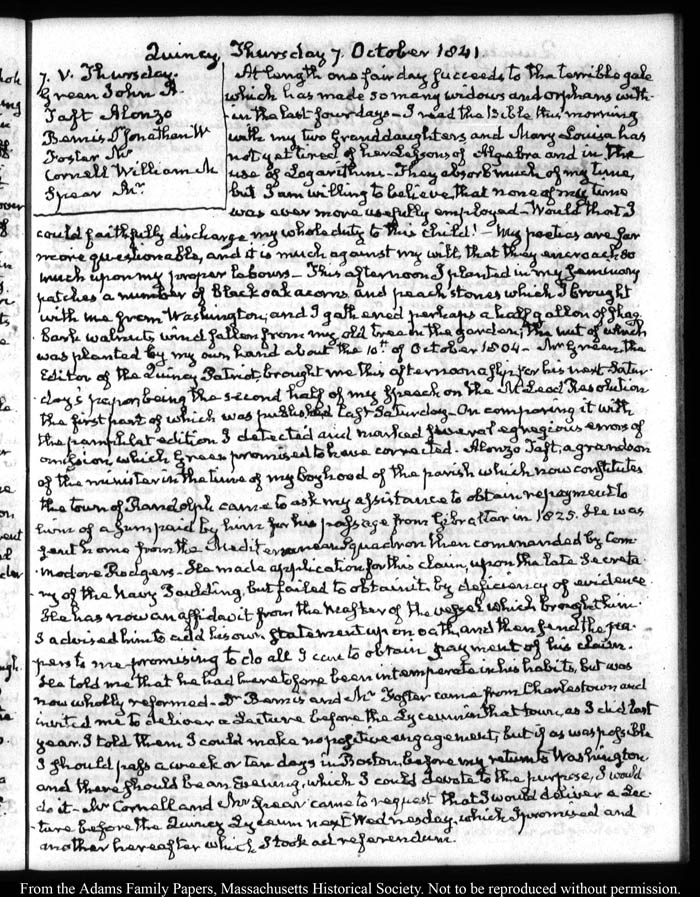 Quincy, Thursday 7. October 1841
7. V. Thursday.
Green John A.
Taft Alonzo
Bemis Dr Jonathan W
Foster Mr
Cornell William M
Spear Mr
At length one fair day succeeds to the terrible gale
which has made so many widows and orphans with-
in the last four days – I read the Bible this morning
with my two Granddaughters and Mary Louisa has
not yet tired of her Lessons of Algebra and in the
use of Logarithms – They absorb much of my time,
but I am willing to believe, that none of my time
was ever more usefully employed – Would that I
could faithfully discharge my whole duty to this child! – My poetics are far
more questionable, and it is much against my will, that they encroach, so
much upon my proper labours – This afternoon I planted in my Seminary
patches a number of Black oak acorns and peach stones which I brought
with me from Washington; and I gathered perhaps a half gallon of shag
bark walnuts, wind fallen from my old tree in the garden; the nut of which
was planted by my own hand about the 10th of October 1804 – Mr Green, the
Editor of the Quincy Patriot, brought me this afternoon a slip for his next Satur-
day's paper being the second half of my Speech on the McLeod Resolution
the first part of which was published last Saturday – On comparing it with
the pamphlet edition I detected and marked several egregious errors of
omission, which Green promised to have corrected. Alonzo Taft, a grandson
of the minister in the time of my boyhood of the parish which now constitutes
the town of Randolph came to ask my assistance to obtain repayment to
him of a sum paid by him for his passage from Gibraltar in 1825. He was
sent home from the Mediterranean Squadron then commanded by Com-
modore Rodgers – He made application for this claim, upon the late Secreta-
ry of the Navy Paulding, but failed to obtain it by deficiency of evidence.
He has now an affidavit from the master of the vessel which brought him.
I advised him to add his own statement upon oath, and then send the pa-
pers to me promising to do all I can to obtain payment of his claim.
He told me that he had heretofore been intemperate in his habits, but was
now wholly reformed – Dr Bemis and Mr Foster came from Charlestown and
invited me to deliver a Lecture before the Lyceum in that town, as I did last
year. I told them I could make no positive engagement, but if as was possible
I should pass a week or ten days in Boston, before my return to Washington
and there should be an Evening, which I could devote to the purpose, I would
do it – Mr Cornell and Mr Spear came to request that I would deliver a Lec-
ture before the Quincy Lyceum next Wednesday, which I promised and
another hereafter which I took ad referendum.
From the Adams Family Papers, Massachusetts Historical Society. Not to be reproduced without permission.